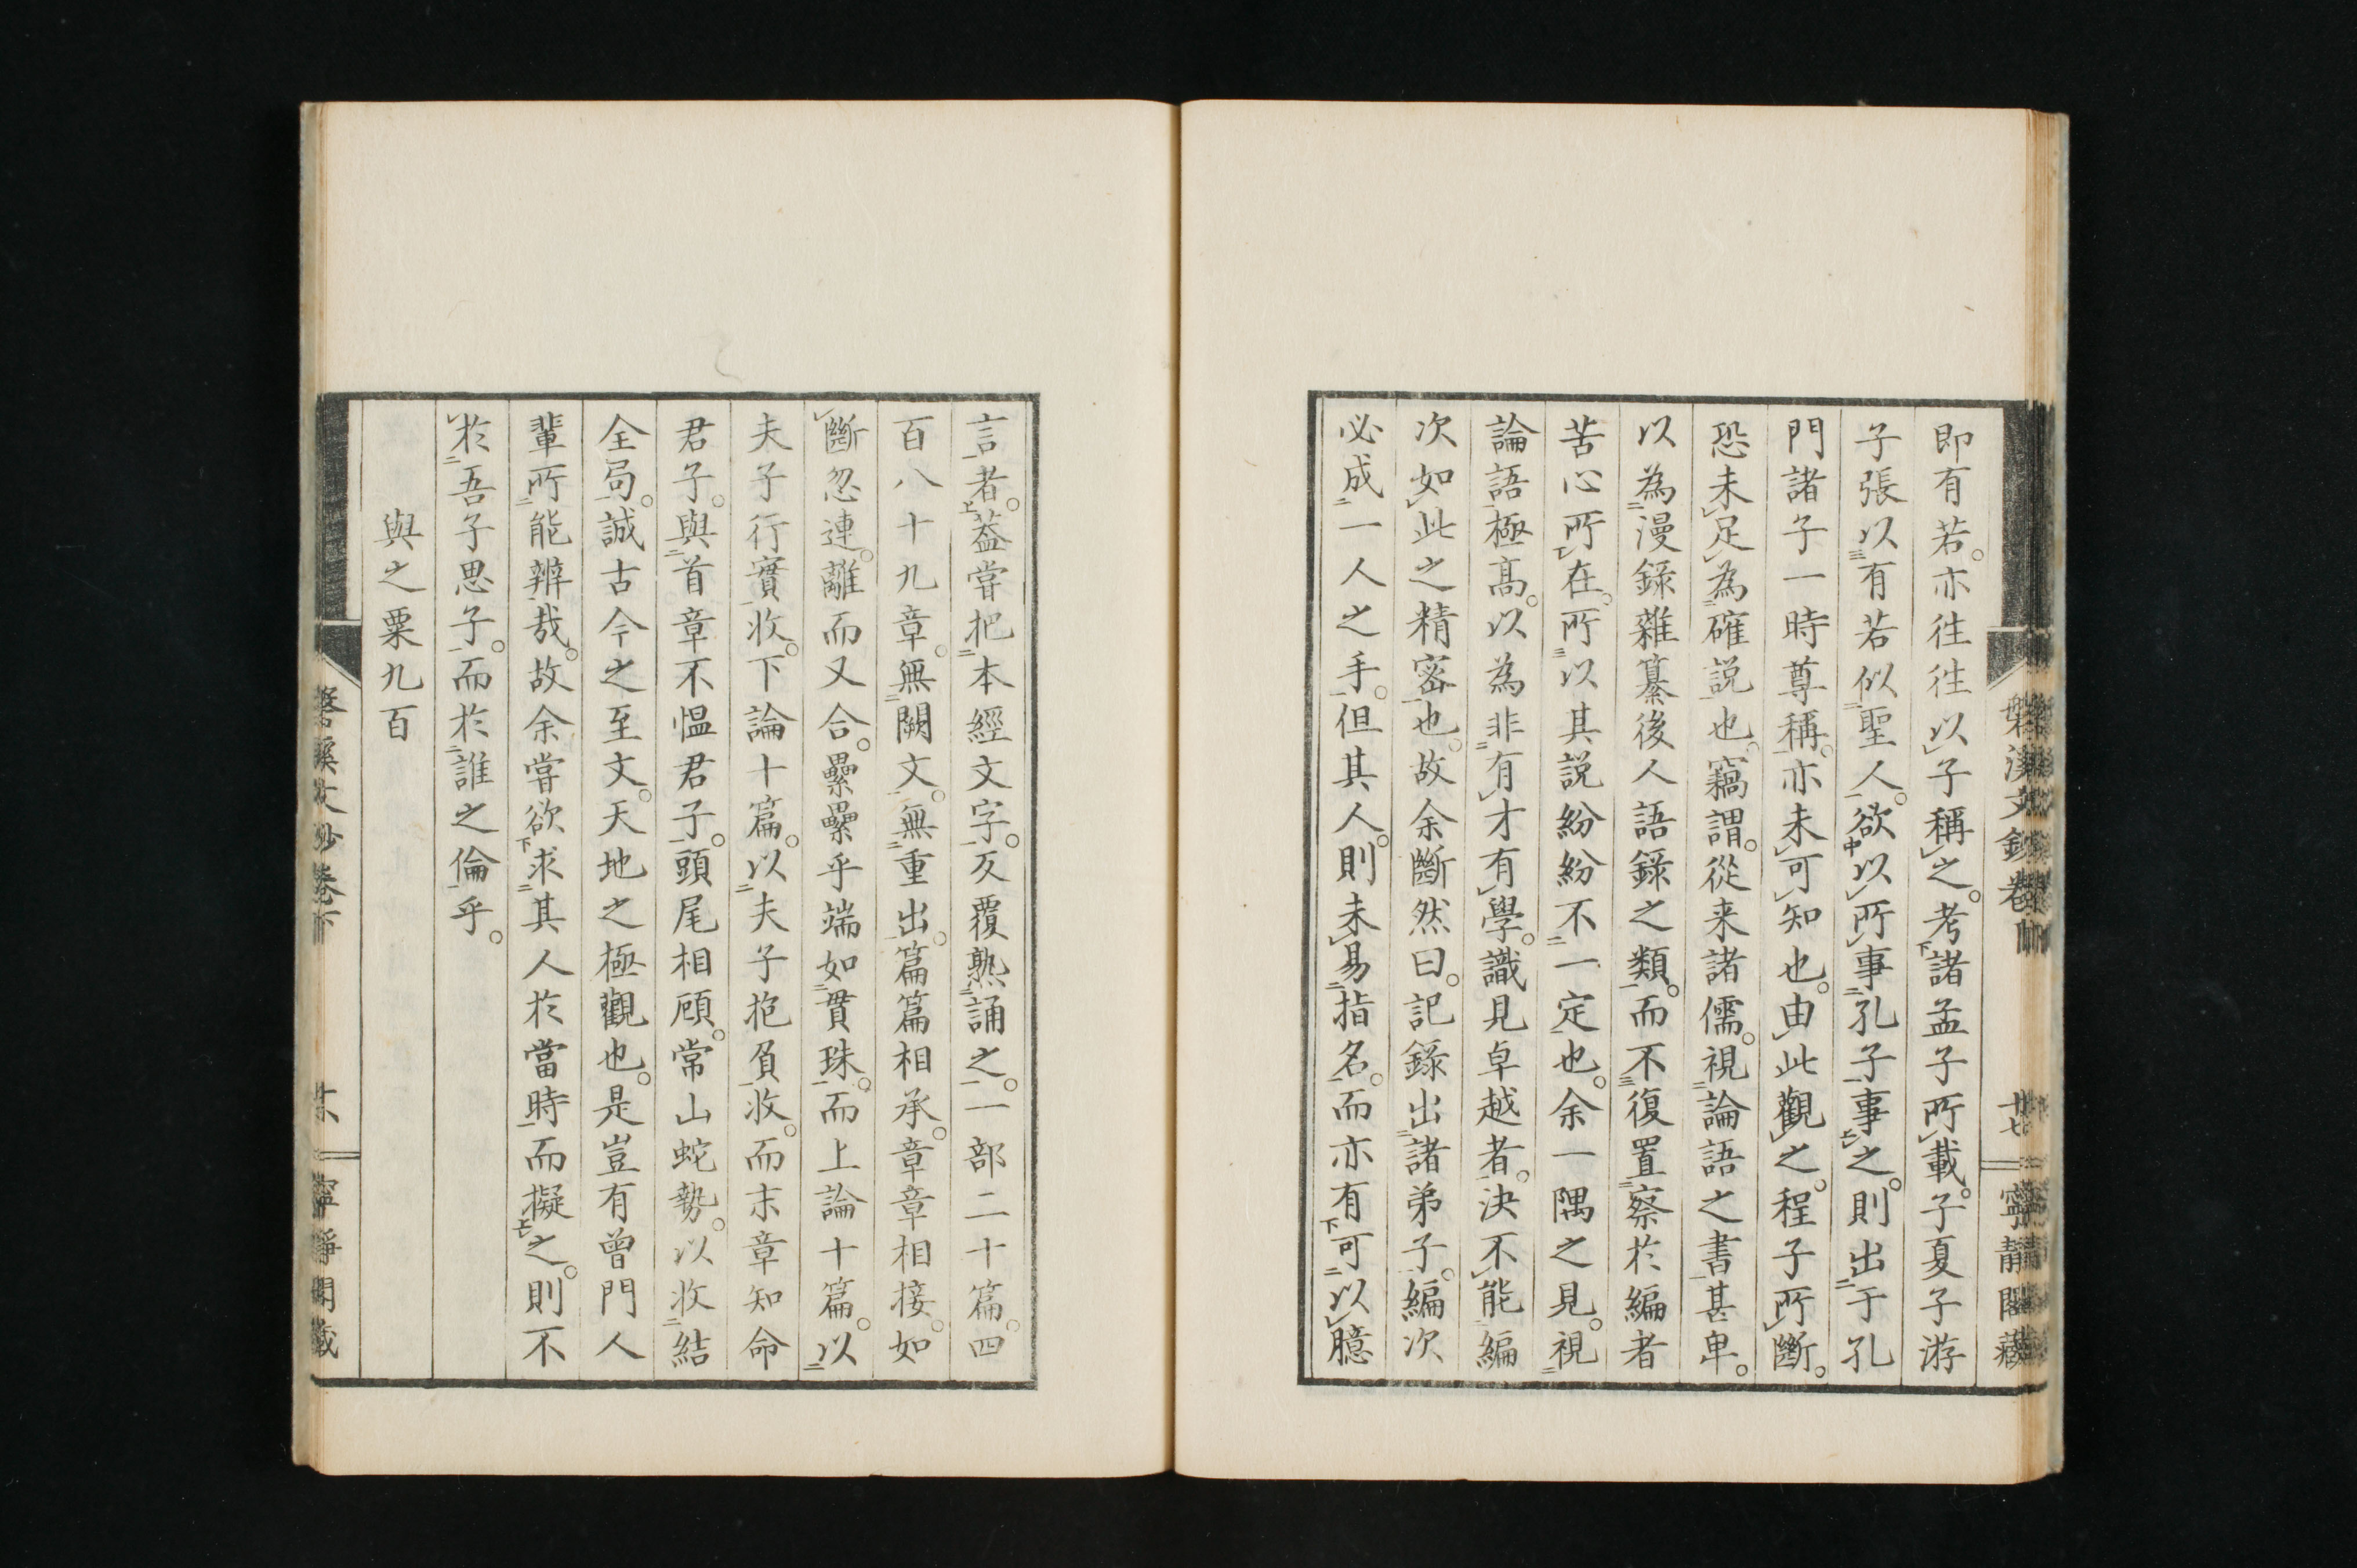 即有若。亦往往以子稱之。考諸孟子所載。子夏子游
子張以有若似聖人。欲以所事孔子事之。則出于孔
門諸子一時尊稱。亦未可知也。由此觀之。程子所斷。
恐未足為確説也。竊謂。從来諸儒。視論語之書甚卑。
以為漫錄雜纂後人語錄之類。而不復置察於編者
苦心所在。所以其説紛紛不一定也。余一隅之見。視
論語極高。以為非有才有學。識見卓越者。決不能編
次如此之精密也。故余斷然曰。記錄出諸弟子。編次
必成一人之手。但其人。則未易指名。而亦有可以臆
言者。葢嘗把本經文字。反覆熟誦之。一部二十篇。四
百八十九章。無闕文。無重出。篇篇相承。章章相接。如
斷忽連。離而又合。纍纍乎端如貫珠。而上論十篇。以
夫子行實收。下論十篇。以夫子抱負收。而末章知命
君子。與首章不愠君子。頭尾相顧。常山蛇勢。以收結
全局。誠古今之至文。天地之極觀也。是豈有曾門人
輩所能辨哉。故余嘗欲求其人於當時而擬之。則不
於吾子思子。而於誰之倫乎。
與之粟九百